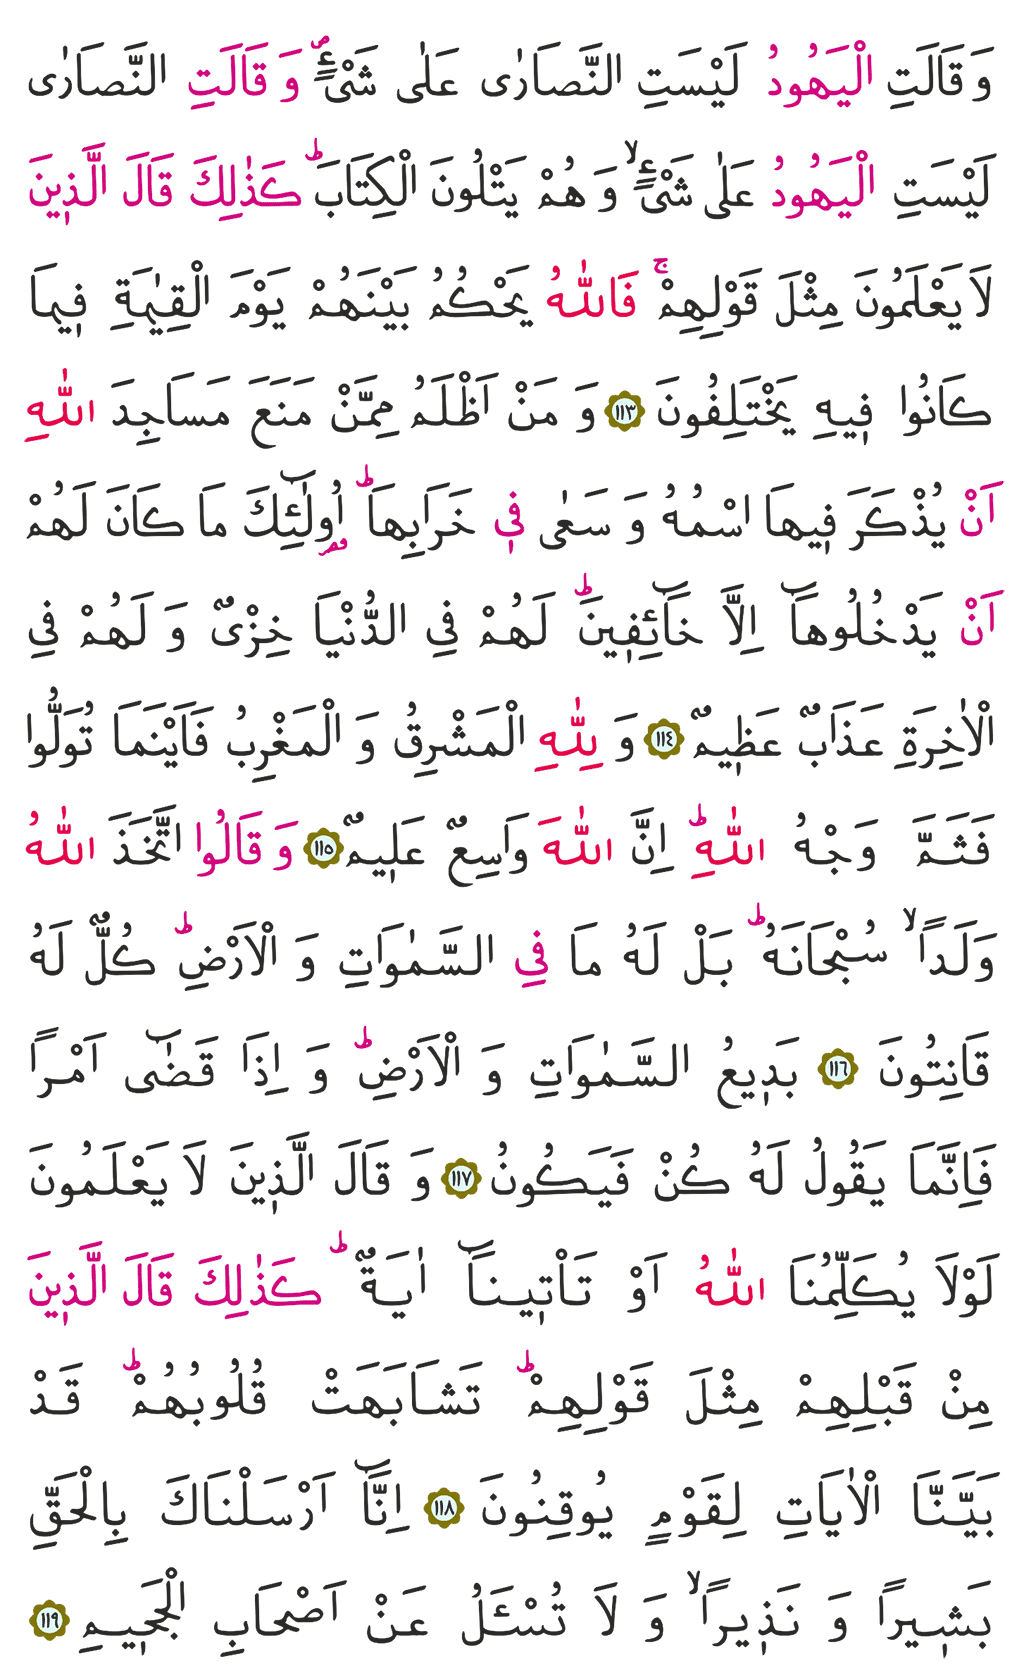 وَ قَالَتِ الْيَهُودُ لَيْسَتِ النَّصَارٰى عَلٰى شَىْءٍۘ وَ قَالَتِ النَّصَارٰى
لَيْسَتِ الْيَهُودُ عَلٰى شَىْءٍۙ وَ هُمْ يَتْلُونَ الْكِتَابَۜ كَذٰلِكَ قَالَ الَّذٖينَ
لَا يَعْلَمُونَ مِثْلَ قَوْلِهِمْۚ فَاللّٰهُ يَحْكُمُ بَيْنَهُمْ يَوْمَ الْقِيٰمَةِ فٖيمَا
كَانُوا فٖيهِ يَخْتَلِفُونَ ١١٣ وَ مَنْ اَظْلَمُ مِمَّنْ مَنَعَ مَسَاجِدَ اللّٰهِ
اَنْ يُذْكَرَ فٖيهَا اسْمُهُ وَ سَعٰى فٖى خَرَابِهَاۜ اُو۬لٰٓئِكَ مَا كَانَ لَهُمْ
اَنْ يَدْخُلُوهَٓا اِلَّا خَٓائِفٖينَۜ لَهُمْ فِى الدُّنْيَا خِزْىٌ وَ لَهُمْ فِى
الْاٰخِرَةِ عَذَابٌ عَظٖيمٌ ١١٤ وَ لِلّٰهِ الْمَشْرِقُ وَ الْمَغْرِبُ فَاَيْنَمَا تُوَلُّوا
فَثَمَّ وَجْهُ اللّٰهِۜ اِنَّ اللّٰهَ وَاسِعٌ عَلٖيمٌ ١١٥ وَ قَالُوا اتَّخَذَ اللّٰهُ
وَلَدًاۙ سُبْحَانَهُۜ بَلْ لَهُ مَا فِى السَّمٰوَاتِ وَ الْاَرْضِۜ كُلٌّ لَهُ
قَانِتُونَ ١١٦ بَدٖيعُ السَّمٰوَاتِ وَ الْاَرْضِۜ وَ اِذَا قَضٰٓى اَمْرًا
فَاِنَّمَا يَقُولُ لَهُ كُنْ فَيَكُونُ ١١٧ وَ قَالَ الَّذٖينَ لَا يَعْلَمُونَ
لَوْلَا يُكَلِّمُنَا اللّٰهُ اَوْ تَاْتٖينَٓا اٰيَةٌۜ كَذٰلِكَ قَالَ الَّذٖينَ
مِنْ قَبْلِهِمْ مِثْلَ قَوْلِهِمْۜ تَشَابَهَتْ قُلُوبُهُمْۜ قَدْ
بَيَّنَّا الْاٰيَاتِ لِقَوْمٍ يُوقِنُونَ ١١٨ اِنَّٓا اَرْسَلْنَاكَ بِالْحَقِّ
بَشٖيرًا وَ نَذٖيرًاۙ وَ لَا تُسْـَٔلُ عَنْ اَصْحَابِ الْجَحٖيمِ ١١٩